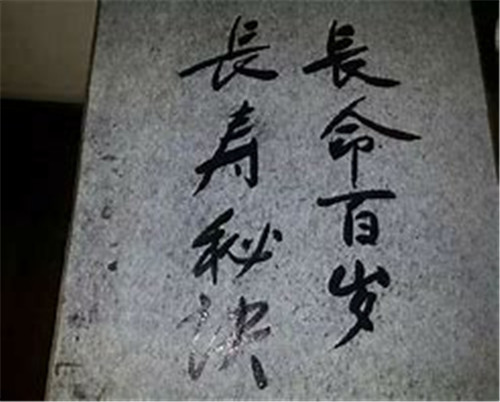 長命百岁
長寿秘诀